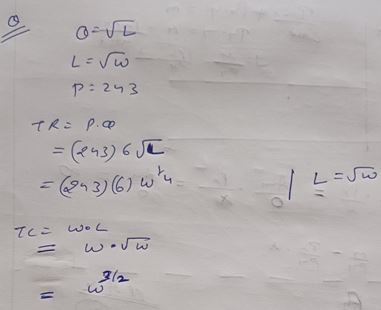 Q
Q = √L
L = √w
P = 243
TR = P.Q
= (243) 6 √L
= (243)(6) w^1/4 | L = √w
TC = w.L
= w.√w
= w^3/2